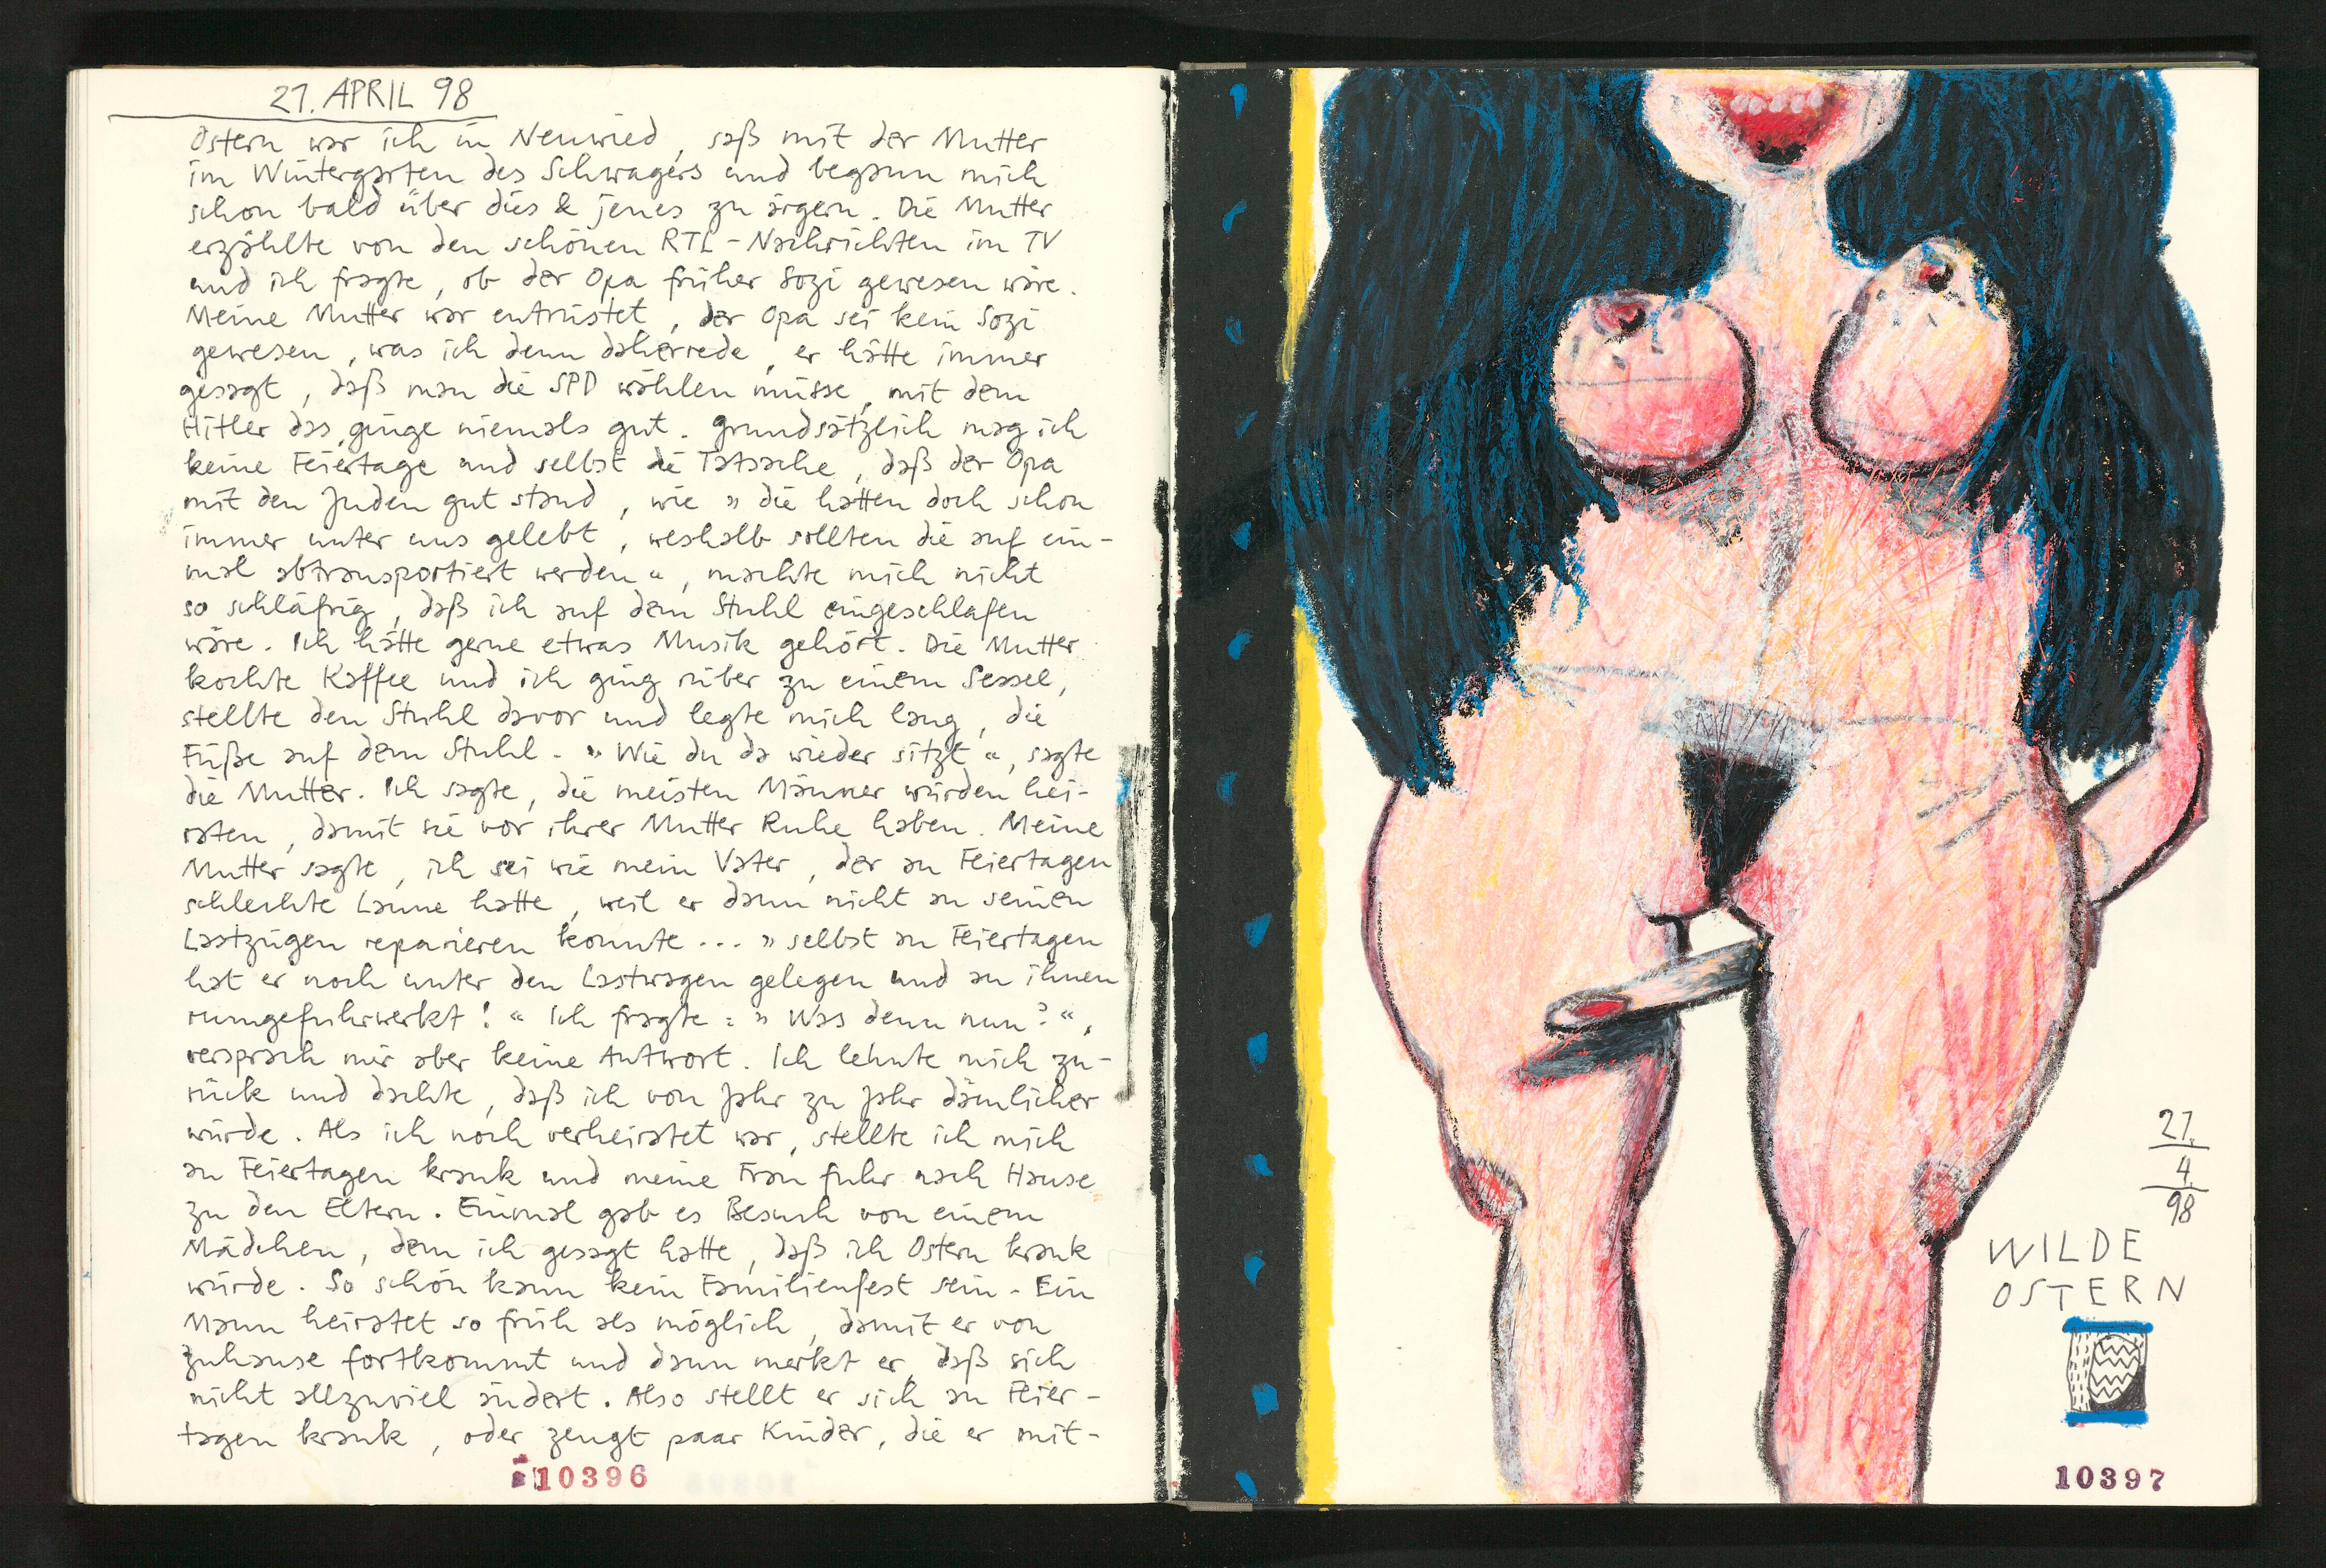 21. APRIL 98
Ostern war ich in Neuwied, saß mit der Mutter
im Wintergarten des Schwagers und begann mich
schon bald über dies & jenes zu ärgern. Die Mutter
erzählte von den schönen RTL-Nachrichten im TV
und ich fragte, ob der Opa früher Sozi gewesen wäre.
Meine Mutter war entrüstet, der Opa sei kein Sozi
gewesen, was ich denn daherrede, er hätte immer
gesagt, daß man die SPD wählen müsse, mit dem
Hitler das ginge niemals gut. Grundsätzlich mag ich
keine Feiertage und selbst die Tatsache, daß der Opa
mit den Juden gut stand, wie » die hatten doch schon
immer unter uns gelebt, weshalb sollten die auf ein-
mal abtransportiert werden «, machte mich nicht
so schläfrig, daß ich auf dem Stuhl eingeschlafen
wäre. Ich hätte gerne etwas Musik gehört. Die Mutter
kochte Kaffee und ich ging rüber zu einem Sessel,
stellte den Stuhl davor und legte mich lang, die
Füße auf dem Stuhl. » Wie du da wieder sitzt «, sagte
die Mutter. Ich sagte, die meisten Männer würden hei-
raten, damit sie vor ihrer Mutter Ruhe haben. Meine
Mutter sagte, ich sei wie mein Vater, der an Feiertagen
schlechte Laune hatte, weil er dann nicht an seinen
Lastzügen reparieren konnte... » selbst an Feiertagen
hat er noch unter den Lastwagen gelegen und an ihnen
rumgefuhrwerkt! « Ich fragte: » Was denn nun? «,
versprach mir aber keine Antwort. Ich lehnte mich zu-
rück und dachte, daß ich von Jahr zu Jahr dämlicher
würde. Als ich noch verheiratet war, stellte ich mich
an Feiertagen krank und meine Frau fuhr nach Hause
zu den Eltern. Einmal gab es Besuch von einem
Mädchen, dem ich gesagt hatte, daß ich Ostern krank
würde. So schön kann kein Familienfest sein. Ein
Mann heiratet so früh als möglich, damit er von
zuhause fortkommt und dann merkt er, daß sich
nicht allzuviel ändert. Also stellt er sich an Feier-
tagen krank, oder zeugt paar Kinder, die er mit-
10396
21.
4.
98
WILDE
OSTERN
10397